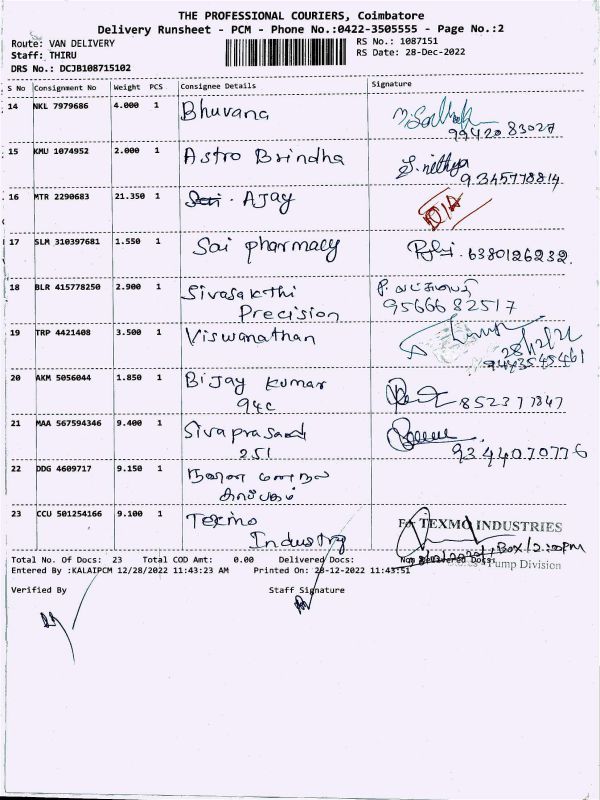 THE PROFESSIONAL COURIERS, Coimbatore
Delivery Runsheet - PCM - Phone No.:0422-3505555 - Page No.:2
Route: VAN DELIVERY
RS No.: 1087151
Staff: THIRU
RS Date: 28-Dec-2022
DRS No.: DCJB108715102
S No Consignment No Weight PCS Consignee Details Signature
14 NKL 7979686 4.000 1 Bhuvana
99420 83027
15 KMU 1074952 2.000 1 Astro Brindha S. nithya
9345778814
16 MTR 2290683 21.350 1 AJay
17 SLM 310397681 1.550 1 Sai pharmacy 6380126232.
18 BLR 415778250 2.900 1 Sivasakthi
Precision 95666 82517
19 TRP 4421408 3.500 1 Viswanathan
28/12/22
9443545461
20 AKM 5056044 1.850 1 BiJay kumar
94c 852377847
21 MAA 567594346 9.400 1 Sivaprasad
251 9344070776
22 DDG 4609717 9.150 1
23 CCU 501254166 9.100 1 Texmo
Industry
For TEXMO INDUSTRIES
Pump Division
Total No. Of Docs: 23 Total COD Amt: 0.00 Delivered Docs: Non Delivered Docs:
Entered By :KALAIPCM 12/28/2022 11:43:23 AM Printed On: 28-12-2022 11:43:51
Verified By Staff Signature